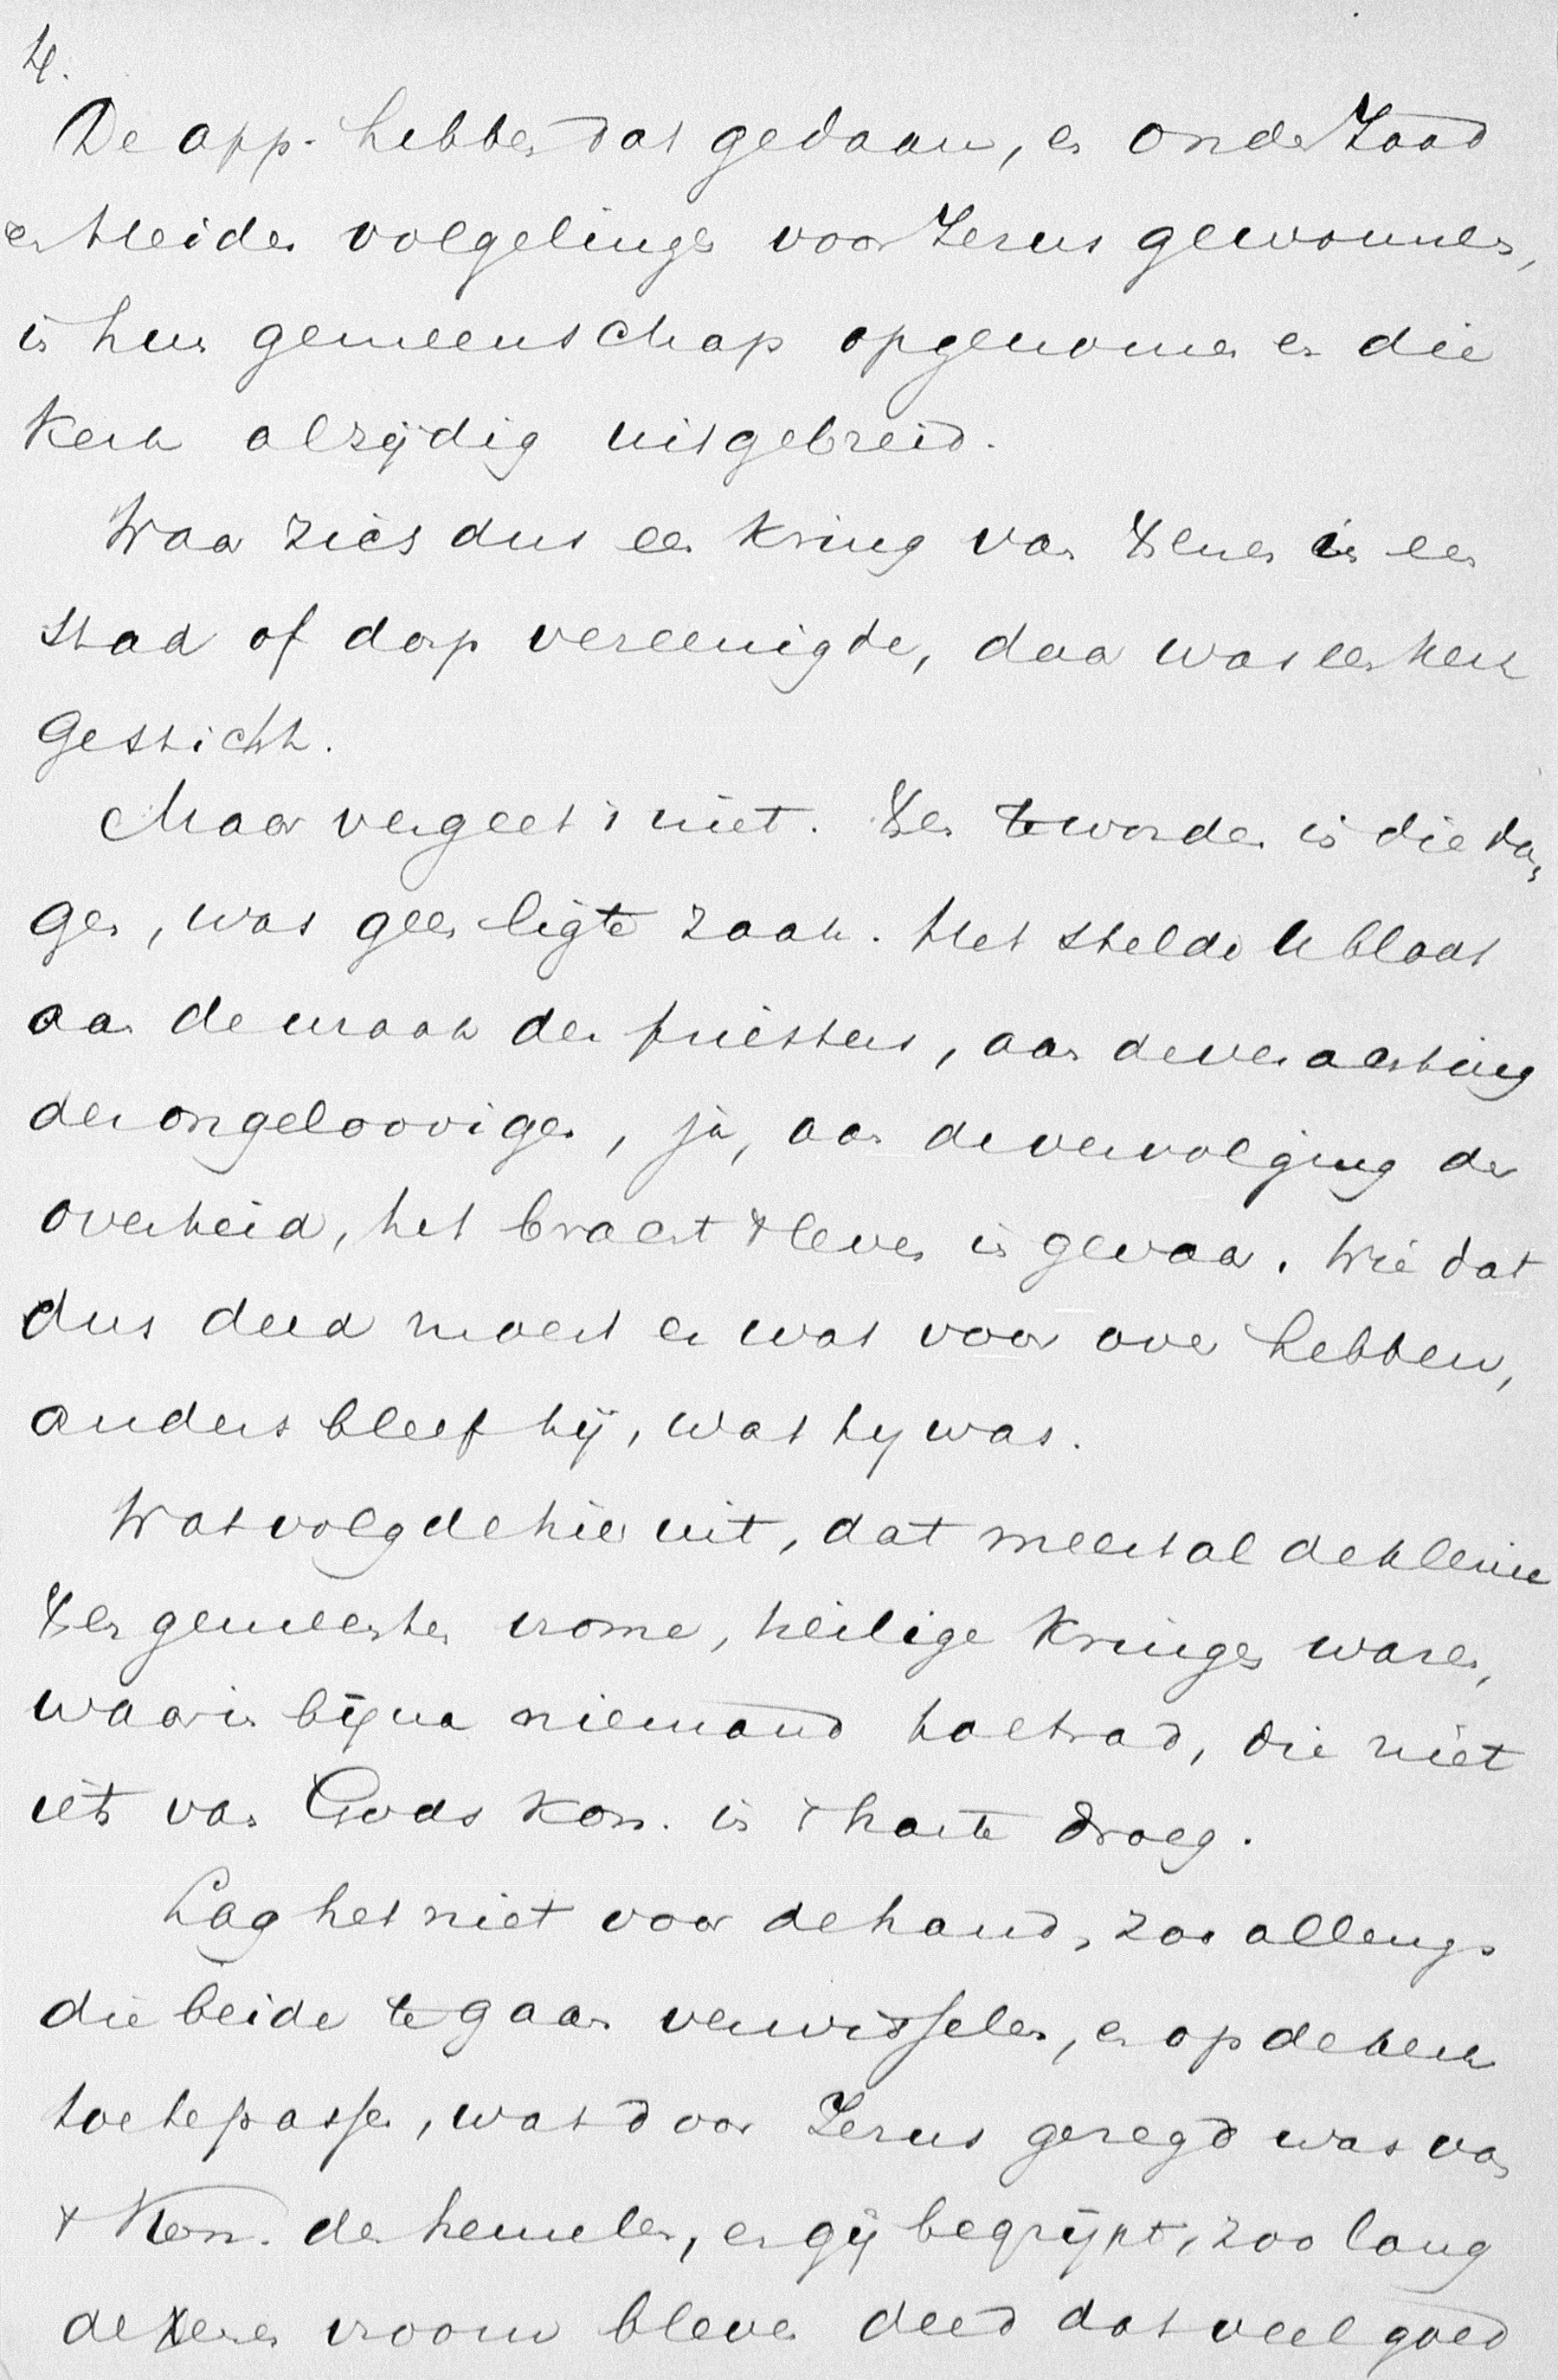 4.
De app. hebben dat gedaan, en onder Jood
en Heiden volgelingen voor Jezus gewonnen,
in hun gemeenschap opgenomen en die
Kerk alzijdig uitgebreid.
Waar zich dus een kring van Xenen in een
stad of dorp vereenigde, daar was een kerk
gesticht.
Maar vergeet 't niet. Xen te worden in die da,
gen, was geen ligte zaak. Het stelde u bloot
aan de wraak der priesters, aan de verachting
der ongeloovigen, ja, aan de vervolging der
overheid, het bracht 't leven in gevaar. Wie dat
dus deed moest er wat voor over hebben,
anders bleef hij, wat hy was.
Wat volgde hier uit, dat meestal de kleine
Xen gemeenten vrome, heilige kringen waren,
waarin bijna niemand toetrad, die niet
iets van Gods Kon. in 't harte droeg.
Lag het niet voor de hand, zoo allengs
die beide te gaan verwisselen, en op de kerk
toetepassen, wat door Jezus gezegd was van
't Kon. der hemelen, en gij begrijpt, zoo lang
de Xenen vroom bleven deed dat veel goed